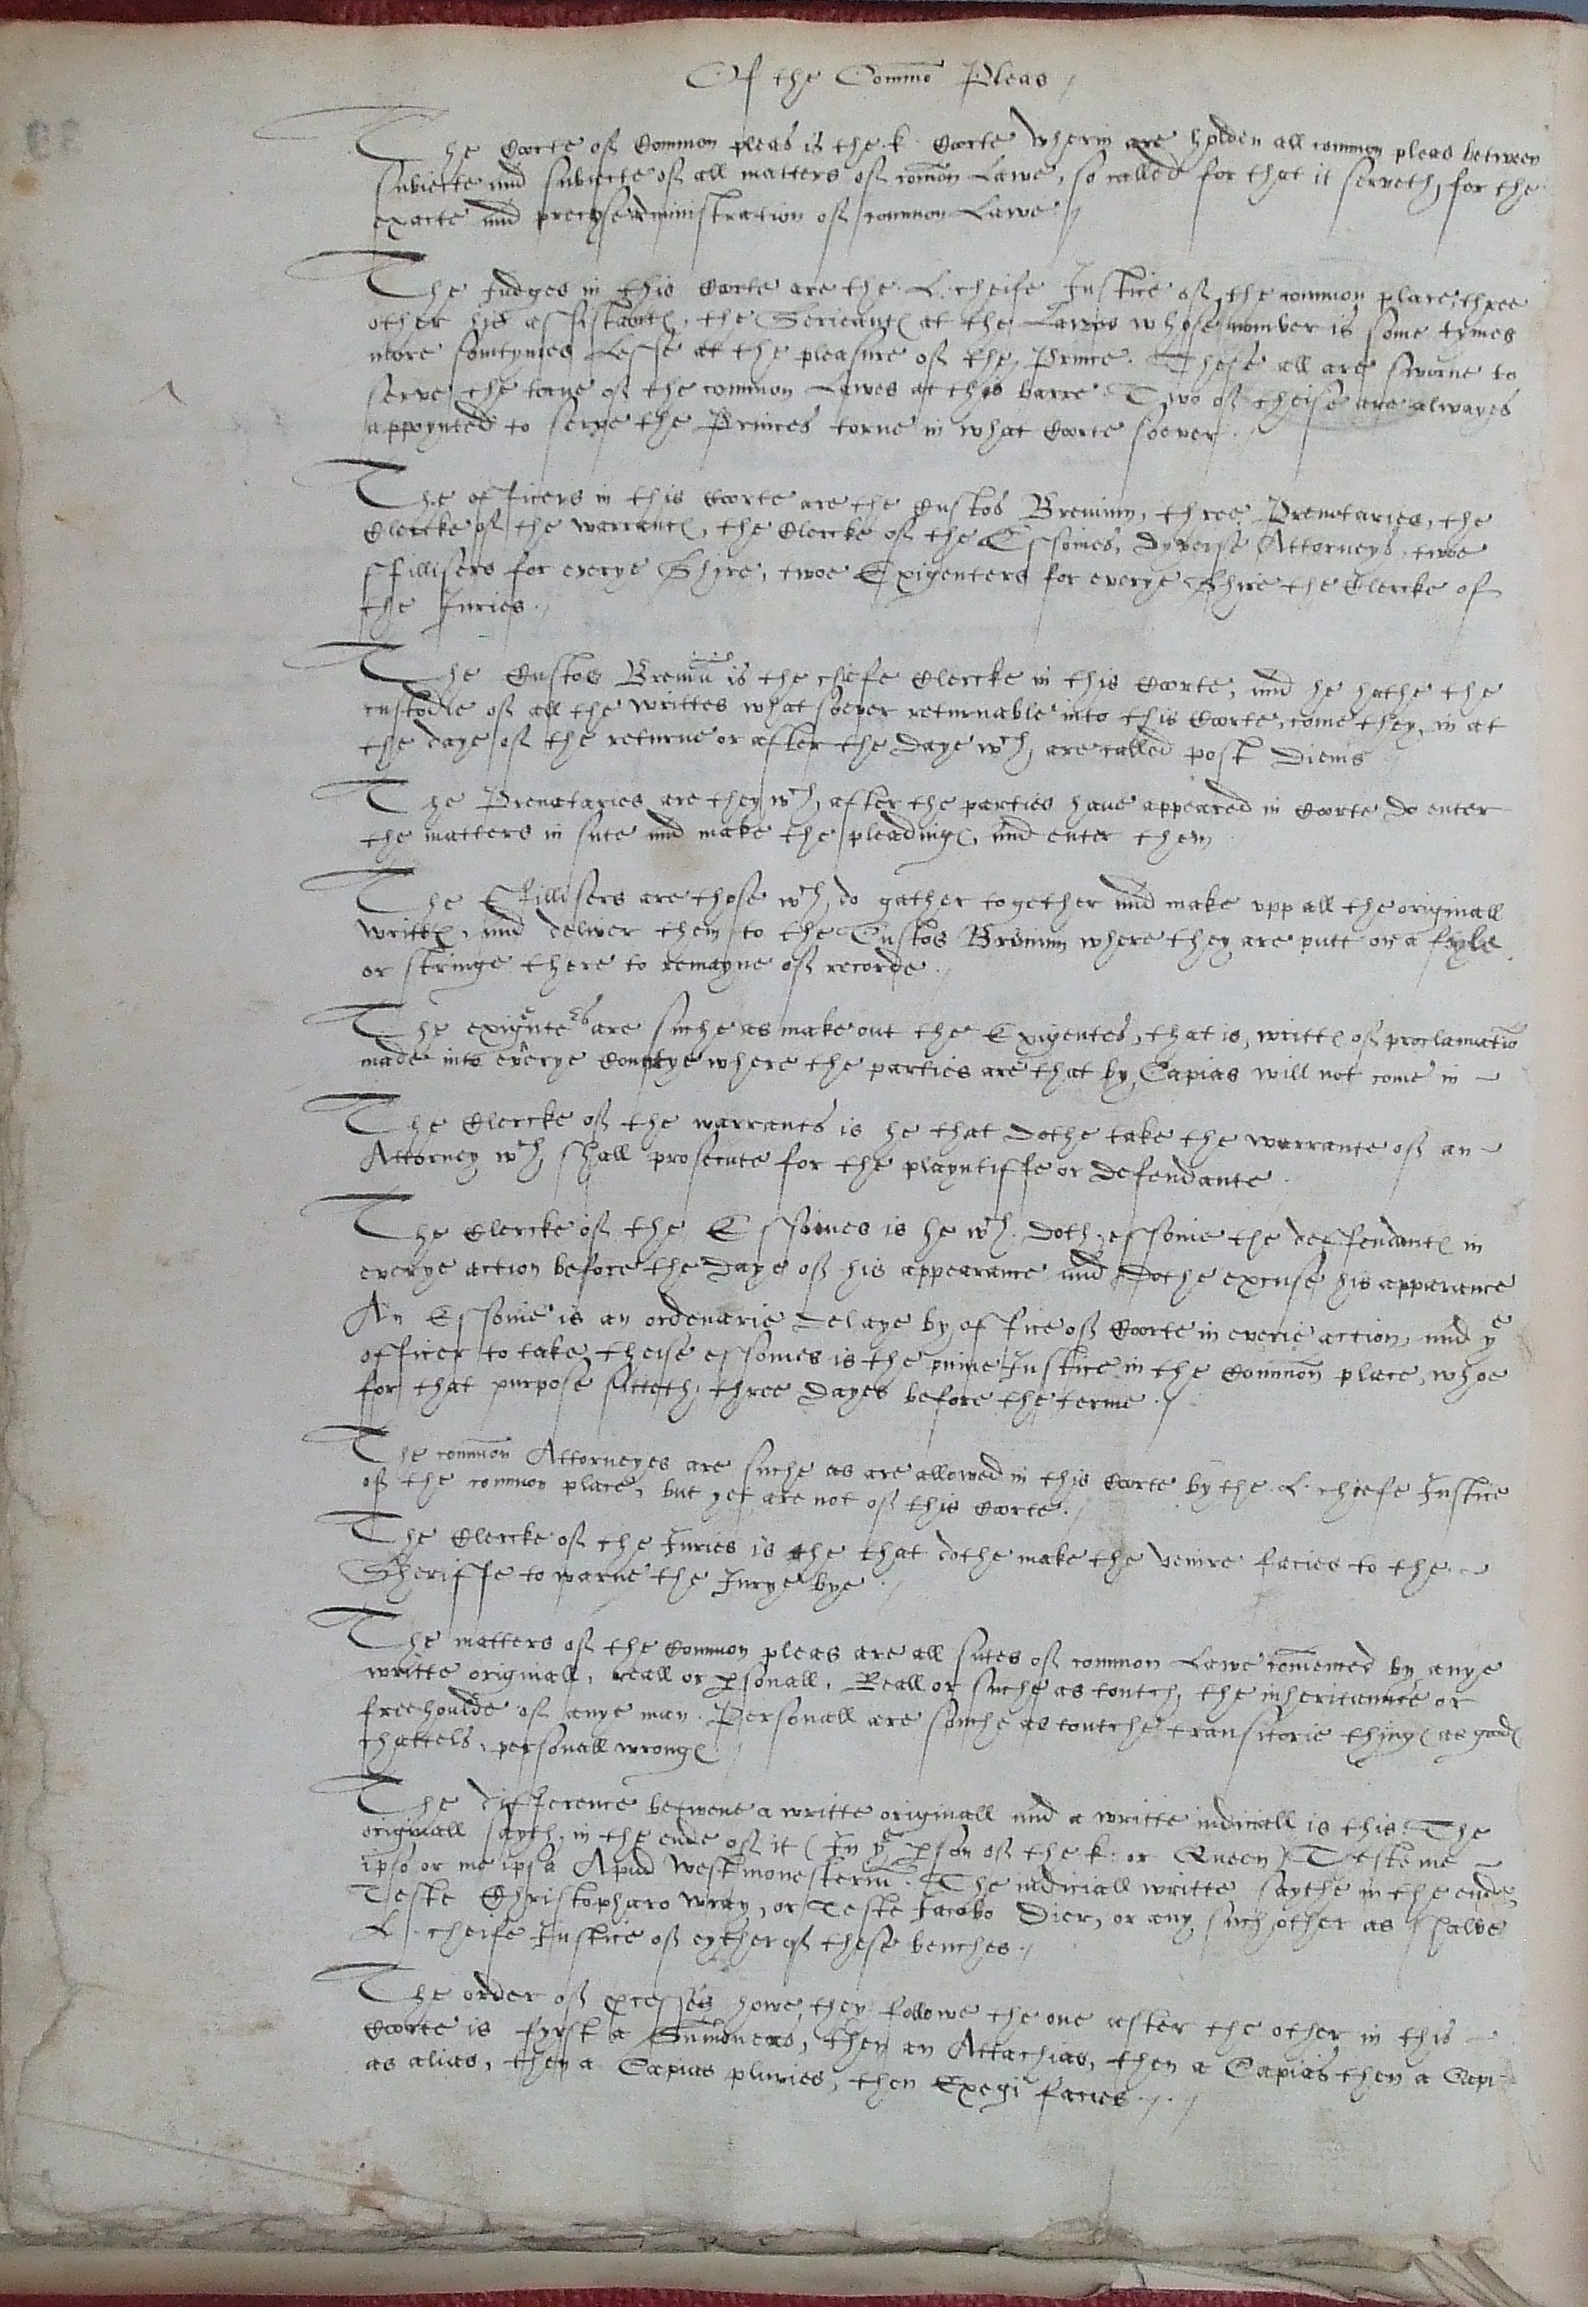 Of the Commō Pleas
The Corte of Common pleas is the k. Corte wherin are holden all common pleas between
subiecte and subiecte of all matters of com̄on Lawe, so called for that it serveth, for the
exacte and precyse administration of common Lawe
The Iudges in this Corte are the L. cheife Iustice of the common place, three
other his assistantes, the Serieantes at the Lawes whose number is some tymes
more somtymes Lesse at the pleasure of the Prince. These all are sworne to
serve the torne of the common Lawes at this barre Two of theise are alwayes
appoynted to serve the Princes torne in what Corte soever.
The officers in this Corte are the Custos Brevium, three Prenotaries, the
Clercke of the warrantes, the Clercke of the Essoines, dyverse Attorneys, twoe
ffillisers for everye Shyre, twoe Exigenters for everye Shire the Clercke of
the Iuries.
The Custos Breviū is the chiefe Clercke in this Corte, and he hathe the
custodie of all the writtes whatsoever returnable into this Corte, come they in at
the daye of the returne or after the daye wch, are called post diems
The Prenotaries are they wch, after the parties have appeared in Corte do enter
the matters in sute and make the pleadinges, and enter them
The ffillisers are those wch, do gather together and make upp all the originall
writtes, and deliver them to the Custos Brevium where they are putt on a fyle
or stringe there to remayne of recorde.
The exigenters are suche as make out the Exigentes, that is, writtes of proclamatiō
made into everye Countye where the parties are that by Capias will not come in
The Clercke of the warrants is he that dothe take the warrante of an
Attorney wch shall prosecute for the playntiffe or defendante
The Clercke of the Essoines is he wch. doth essoine the deffendantes in
everye action before the daye of his appearance and dothe excuse his apparance
An Essoine is an ordenarie delaye by office of Corte in everie action, and ye
officer to take theise essoines is the puine Iustice in the Common̄ place, whoe
for that purpose sitteth, three dayes before the terme.
The common̄ Attorneyes are suche as are allowed in this Corte by the L. chiefe Iustice
of the common place, but yet are not of this Corte.
The Clercke of the Iuries is he that dothe make the venire facies to the
Sheriffe to warne the Iurye bye.
The matters of the Common pleas are all sutes of common Lawe com̄enced by anye
writte originall, reall or ꝑsonall. Reall or suche as toutch, the inheritaunce or
freehoulde of anye man. Personall are souche as toutche transitorie thinges as goodes
chattels, personall wronges
The difference betwene a writte originall and a writte iudiciall is this: The
originall sayth, in the ende of it (In ye ꝑson of the k: or Queen) Teste me
ipso or me ipsa Apud westmonesteriū. The iudiciall writte saythe in the ende
Teste Christopharo wray, or Teste Iacobo Dier, or any such other as shalbe
L. cheife Iustice of eyther of these benches.
The order of ꝓcesses howe they followe the one after the other in this
Corte is fyrst a Sum̄oneas, then an Attachias, then a Capias then a Capi
as alias, then a Capias pluries, then Exegi facies.